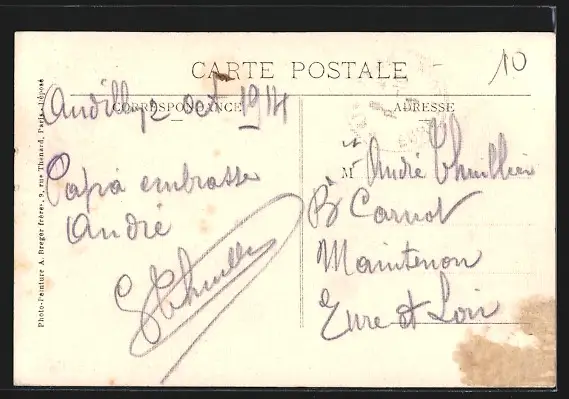 10
CARTE POSTALE
CORRESPONDANCE
ADRESSE
Andilly 2 oct 1914
Papa embrasse
André
G Thuillier
M André Thuillier
Bd Carnot
Maintenon
Eure et Loir
Photo-Peinture A. Breger frères, 9, rue Thénard, Paris, déposé